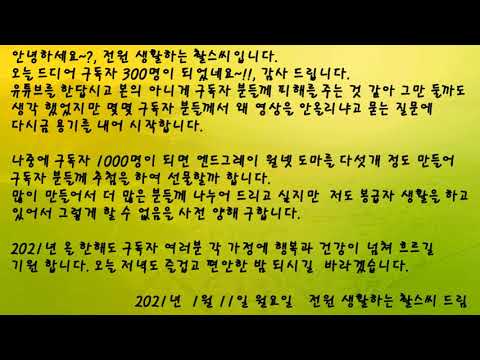 안녕하세요~?, 전원 생활하는 촬스씨입니다.
오늘 드디어 구독자 300명이 되었네요~!!, 감사 드립니다.
유튜브를 한답시고 본의 아니게 구독자 분들께 피해를 주는 것 같아 그만 둘까도
생각 했었지만 몇몇 구독자 분들께서 왜 영상을 안올리냐고 묻는 질문에
다시금 용기를 내어 시작합니다.
나중에 구독자 1000명이 되면 엔드그레이 월넛 도마를 다섯개 정도 만들어
구독자 분들께 추첨을 하여 선물할까 합니다.
많이 만들어서 더 많은 분들께 나누어 드리고 싶지만 저도 봉급자 생활을 하고
있어서 그렇게 할 수 없음을 사전 양해 구합니다.
2021년 올 한해도 구독자 여러분 각 가정에 행복과 건강이 넘쳐 흐르길
기원 합니다. 오늘 저녁도 즐겁고 편안한 밤 되시길 바라겠습니다.
2021년 1월 11일 월요일 전원 생활하는 촬스씨 드림